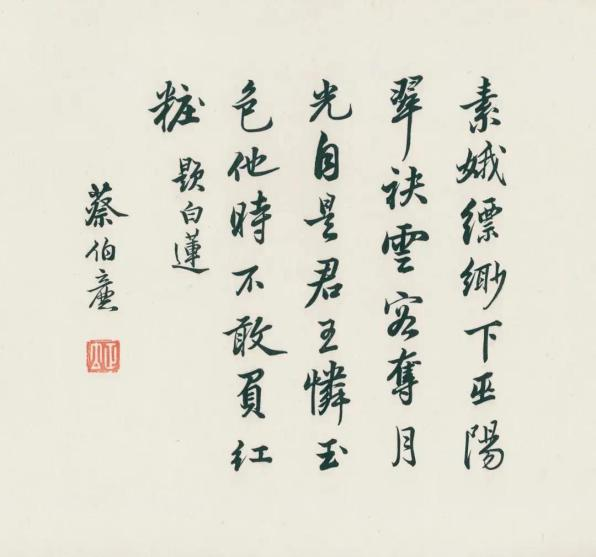 素娥縹緲下巫陽
翠袂雲容奪月
光自是君王憐玉
色他時不敢買紅
粧
題白蓮
蔡伯